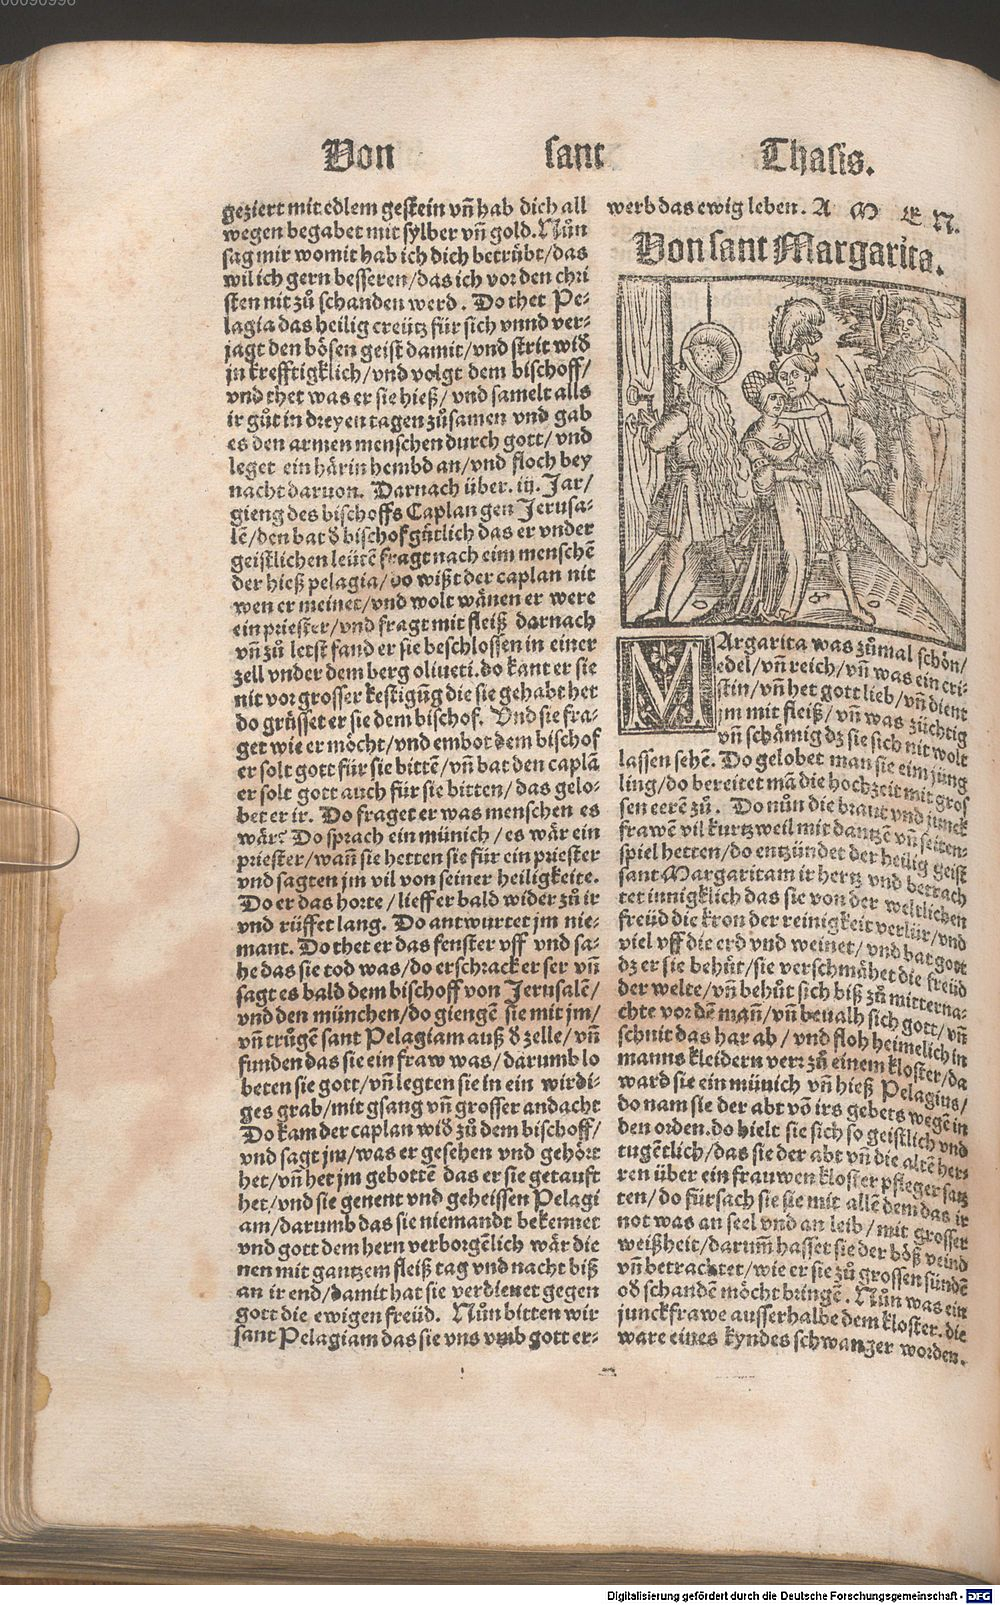 00090996
Von sant Thasis.
geziert mit edlem gestein vñ hab dich all
wegen begabet mit sylber vñ gold. Nůn
sag mir womit hab ich dich betrůbt/das
wil ich gern besseren/das ich vor den chri
sten nit zů schanden werd. Do thet Pe-
lagia das heilig creütz für sich vnnd ver-
jagt den bösen geist damit/vnd strit wið
jn krefftigklich/vnd volgt dem bischoff/
vnd thet was er sie hieß/vnd samelt alls
ir gůt in dreyen tagen zůsamen vnd gab
es den armen menschen durch gott/vnd
leget ein härin hembd an/vnd floch bey
nacht daruon. Darnach über.iij. Jar/
gieng des bischoffs Caplan gen Jerusa-
lē/den bat ð bischof gůtlich das er vnder
geistlichen leütē fragt nach eim menschē
der hieß pelagia/do wißt der caplan nit
wen er meinet/vnd wolt wänen er were
ein priester/vnd fragt mit fleiß darnach
vñ zů letst fand er sie beschlossen in einer
zell vnder dem berg oliueti. do kant er sie
nit vor grosser kestigūg die sie gehabt het
do grůsset er sie dem bischof. Vnd sie fra-
get wie er möcht/vnd embot dem bischof
er solt gott für sie bittē/vñ bat den caplā
er solt gott auch für sie bitten/das gelo-
bet er ir. Do fraget er was menschen es
wär? Do sprach ein münich/es wär ein
priester/wañ sie hetten sie für ein priester
vnd sagten jm vil von seiner heiligkeite.
Do er das horte/lieff er bald wider zů ir
vnd rüffet lang. Do antwurtet jm nie-
mant. Do thet er das fenster vff vnd sa-
he das sie tod was/do erschrack er ser vñ
sagt es bald dem bischoff von Jerusalē/
vnd den münchen/do giengē sie mit jm/
vñ trůgē sant Pelagiam auß ð zelle/vñ
funden das sie ein fraw was/darumb lo
beten sie gott/vñ legten sie in ein wirdi-
ges grab/mit gsang vñ grosser andacht
Do kam der caplan wið zů dem bischoff/
vnd sagt jm/was er gesehen vnd gehört
het/vñ het jm gebottē das er sie getauft
het/vnd sie genent vnd geheissen Pelagi
am/darumb das sie niemandt bekennet
vnd gott dem hern verborgēlich wär die
nen mit gantzem fleiß tag vnd nacht biß
an ir end/damit hat sie verdienet gegen
gott die ewigen freüd. Nůn bitten wir
sant Pelagiam das sie vns vmb gott er-
werb das ewig leben. A M E N.
Von sant Margarita.
MArgarita was zůmal schön/
edel/vñ reich/vñ was ein cri-
stin/vñ het gott lieb/vñ dient
jm mit fleiß/vñ was züchtig
vñ schämig dz sie sich nit wolt
lassen sehē. Do gelobet man sie eim jüng
ling/do bereitet mā die hochzeit mit gros
sen eerē zů. Do nůn die braut vnd junck
frawē vil kurtzweil mit dantzē vñ seiten-
spiel hetten/do entzündet der heilig geist
sant Margaritam ir hertz vnd betrach
tet innigklich das sie von der weltlichen
freüd die kron der reinigkeit verlür/vnd
viel vff die erd vnd weinet/vnd bat gott
dz er sie behůt/sie verschmähet die freüd
der welte/vñ behůt sich biß zů mitterna-
chte vor dē mañ/vñ beualh sich gott/vñ
schnit das har ab/vnd floh heimelich in
manns kleidern verr zů einem kloster/da
ward sie ein münich vñ hieß Pelagius/
do nam sie der abt vō irs gebets wegē in
den orden. do hielt sie sich so geistlich vnd
tugētlich/das sie der abt vñ die altē her-
ren über ein frauwen kloster pfleger satz
ten/do fürsach sie sie mit allē dem das ir
not was an seel vnd an leib/mit grosser
weißheit/darum̃ hasset sie der böß veind
vñ betrachtet/wie er sie zů grossen sündē
oð schandē möcht bringē. Nůn was ein
junckfrawe ausserhalbe dem kloster. die
ware eines kyndes schwanger worden.
Digitalisierung gefördert durch die Deutsche Forschungsgemeinschaft - DFG